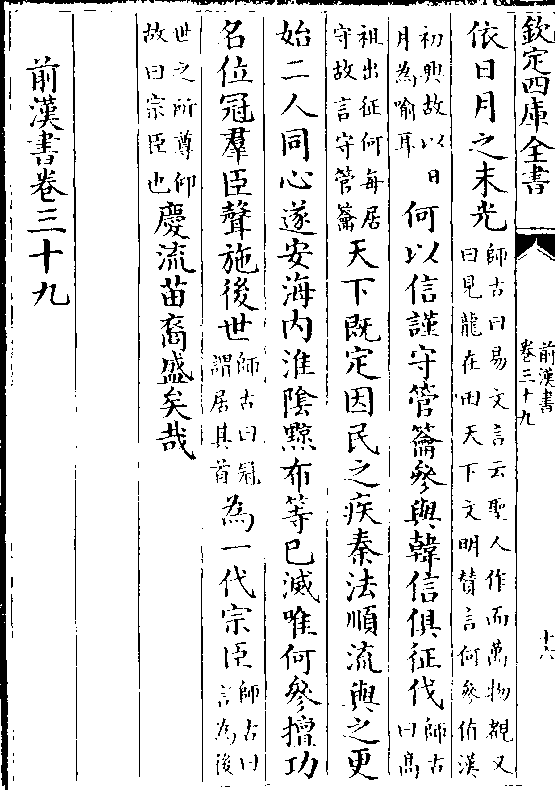 欽定四庫全書
前漢書
卷三十九
十六
依日月之末光
師古曰易文言云聖人作而萬物覩又
曰見龍在田天下文明賛言何參佑漢
初興故以日
月為喻耳
何以信謹守管籥參與韓信俱征伐
師古
曰高
祖出征何每居
守故言守管籥
天下既定因民之疾秦法順流與之更
始二人同心遂安海内淮隂黥布等已滅唯何參擅功
名位冠羣臣聲施後世
師古曰冠
謂居其首
為一代宗臣
師古曰
言為後
世之所尊仰
故曰宗臣也
慶流苗裔盛矣哉
前漢書卷三十九